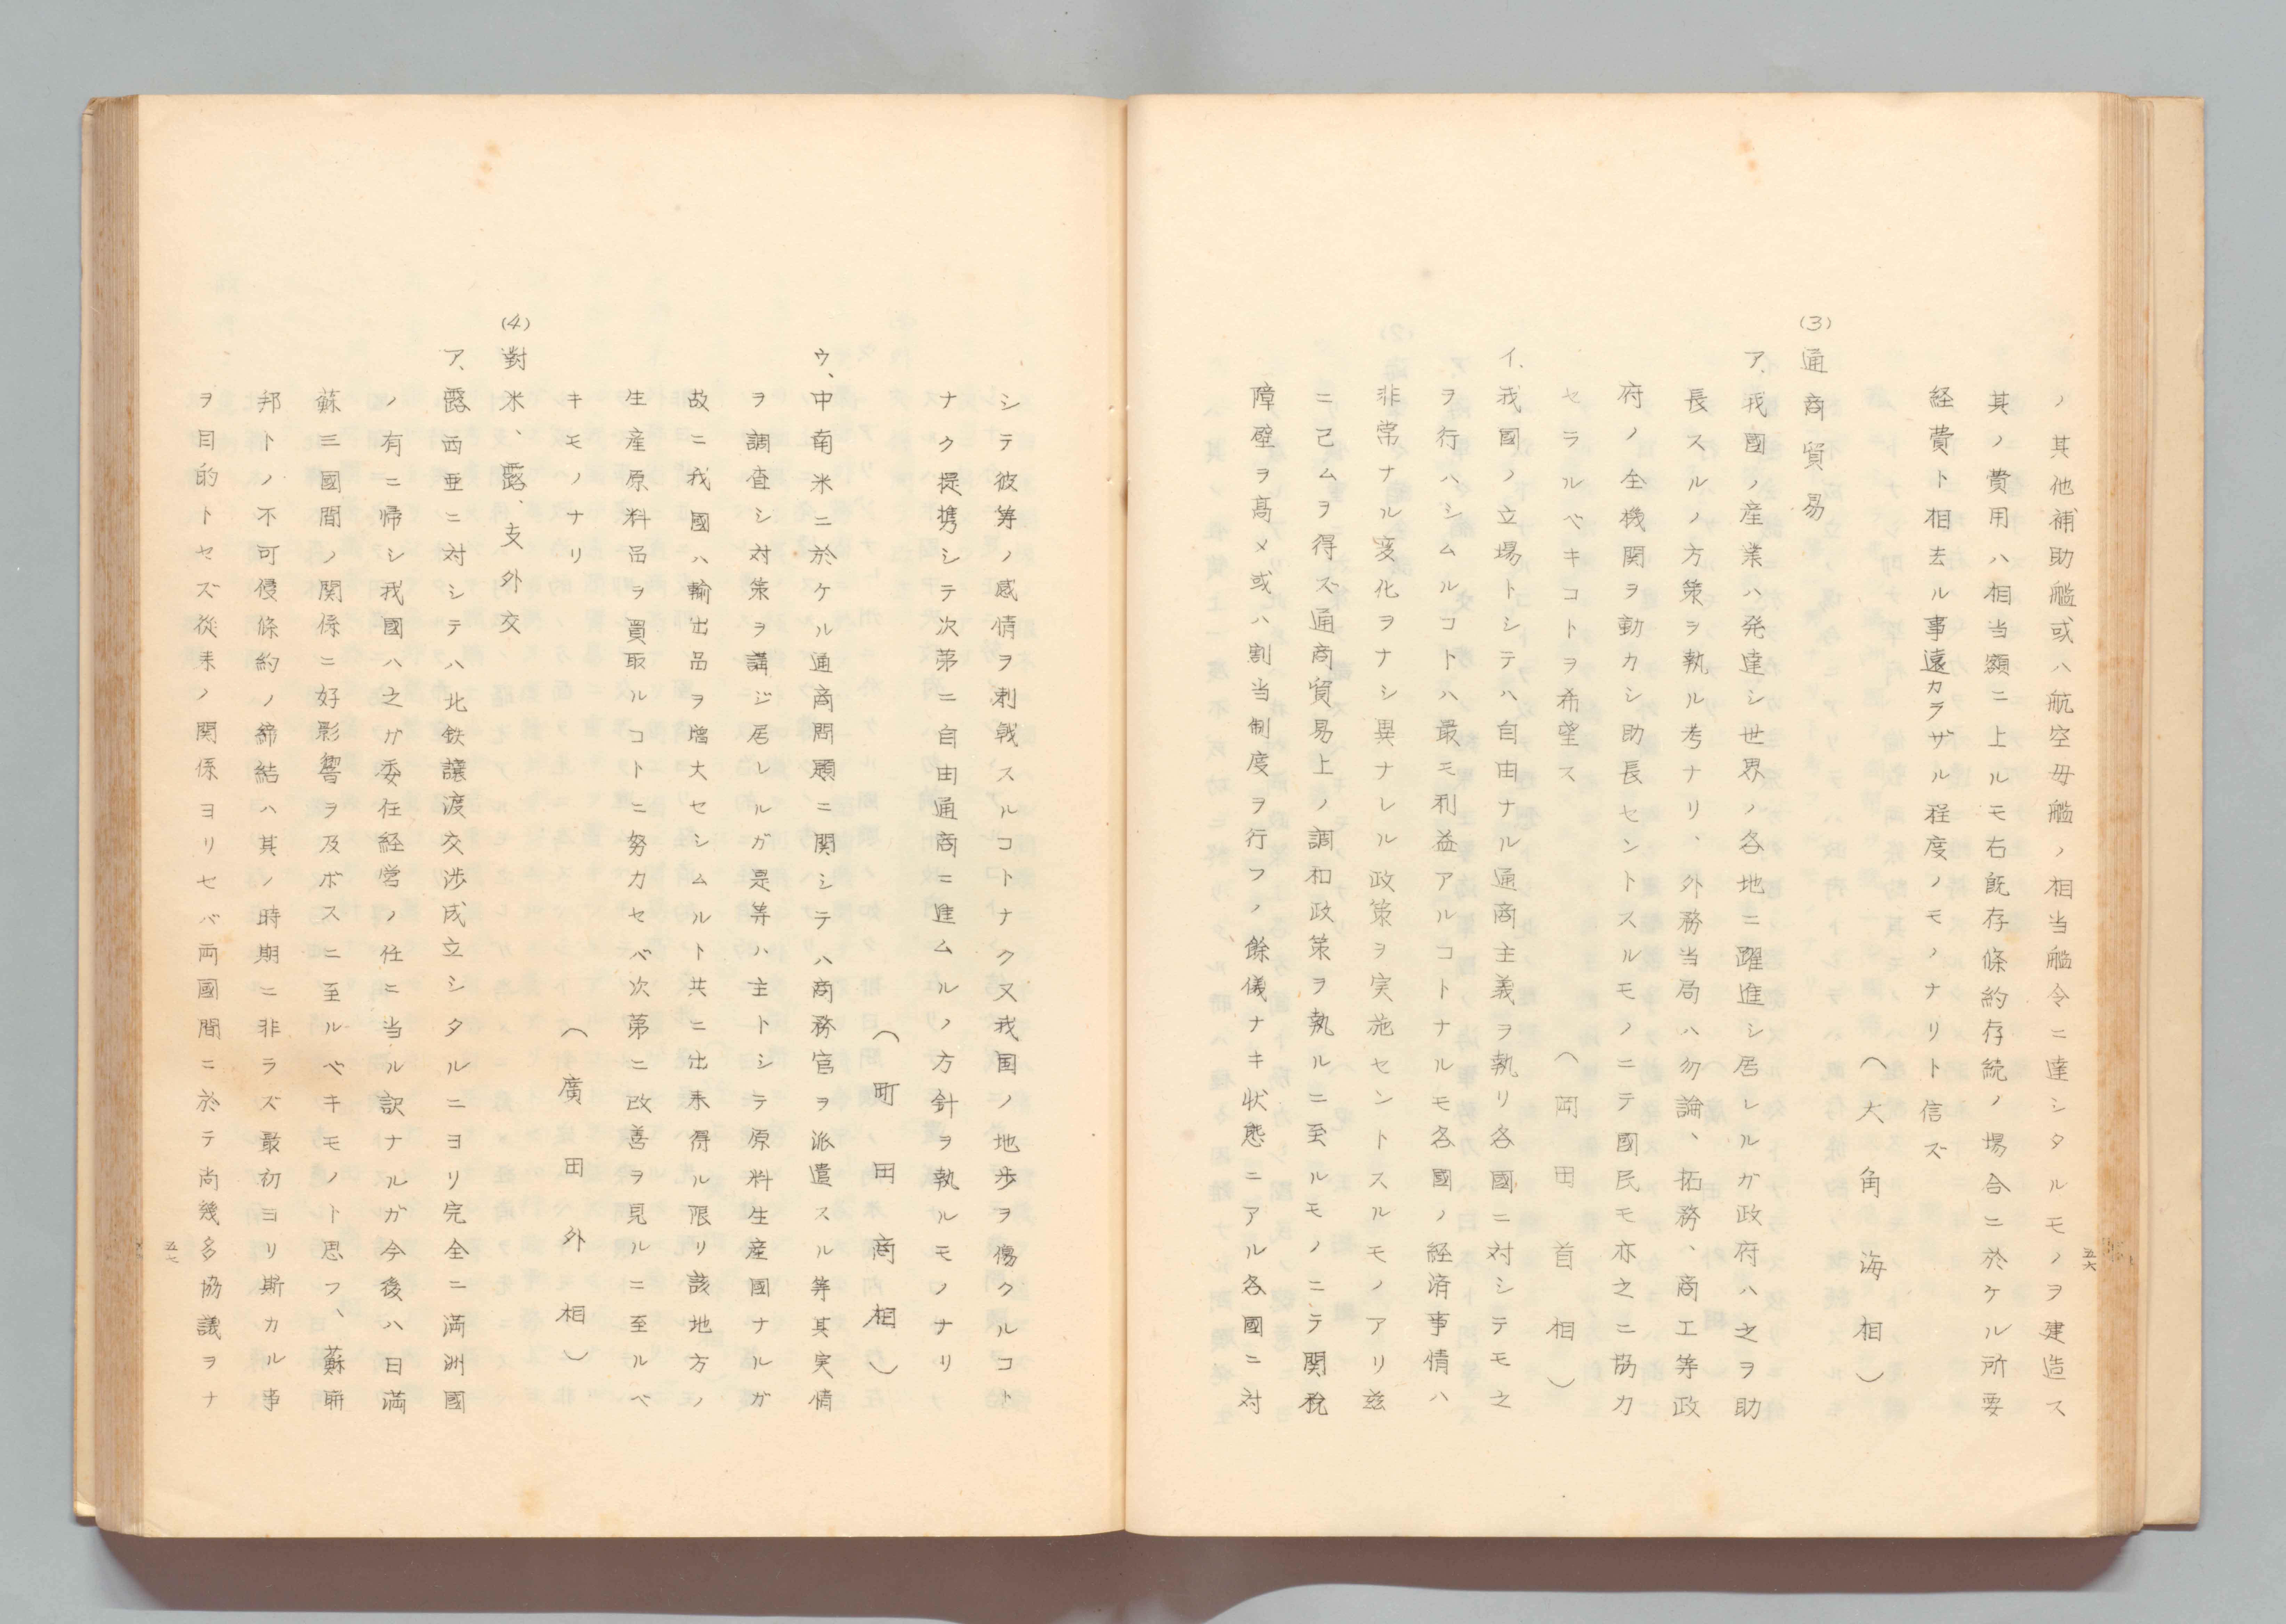 ノ其他補助艦或ハ航空母艦ノ相当艦令ニ達シタルモノヲ建造ス
其ノ費用ハ相当額ニ上ルモ右既存條約存続ノ場合ニ於ケル所要
経費ト相去ル事遠カラザル程度ノモノナリト信ズ
（大角海相）
(3)通商貿易
ア、我國ノ産業ハ発達シ世界ノ各地ニ躍進シ居レルガ政府ハ之ヲ助
長スルノ方策ヲ執ル考ナリ、外務当局ハ勿論、拓務、商工等政
府ノ全機関ヲ動カシ助長セントスルモノニテ國民モ亦之ニ協力
セラルベキコトヲ希望ス
（岡田首相）
イ、我國ノ立場トシテハ自由ナル通商主義ヲ執リ各國ニ対シテモ之
ヲ行ハシムルコトハ最モ利益アルコトナルモ各國ノ経済事情ハ
非常ナル変化ヲナシ異ナレル政策ヲ実施セントスルモノアリ茲
ニ己ムヲ得ズ通商貿易上ノ調和政策ヲ執ルニ至ルモノニテ関税
障壁ヲ高メ或ハ割当制度ヲ行フノ餘儀ナキ状態ニアル各國ニ対
五六
シテ彼等ノ感情ヲ刺戟スルコトナク又我国ノ地歩ヲ傷クルコト
ナク提携シテ次第ニ自由通商ニ進ムルノ方針ヲ執ルモノナリ
（町田商相）
ウ、中南米ニ於ケル通商問題ニ関シテハ商務官ヲ派遣スル等其実情
ヲ調査シ対策ヲ講ジ居レルガ是等ハ主トシテ原料生産國ナルガ
故ニ我國ハ輸出品ヲ増大セシムルト共ニ出来得ル限リ該地方ノ
生産原料品ヲ買取ルコトニ努力セバ次第ニ改善ヲ見ルニ至ルベ
キモノナリ
（廣田外相）
(4)對米、露、支外交
ア、露西亜ニ対シテハ北鉄讓渡交渉成立シタルニヨリ完全ニ満洲國
ノ有ニ帰シ我國ハ之ガ委任経営ノ任ニ当ル訳ナルガ今後ハ日満
蘇三國間ノ関係ニ好影響ヲ及ボスニ至ルベキモノト思フ、蘇聯
邦トノ不可侵條約ノ締結ハ其ノ時期ニ非ラズ最初ヨリ斯カル事
ヲ目的トセズ従来ノ関係ヨリセバ両國間ニ於テ尚幾多協議ヲナ
五七